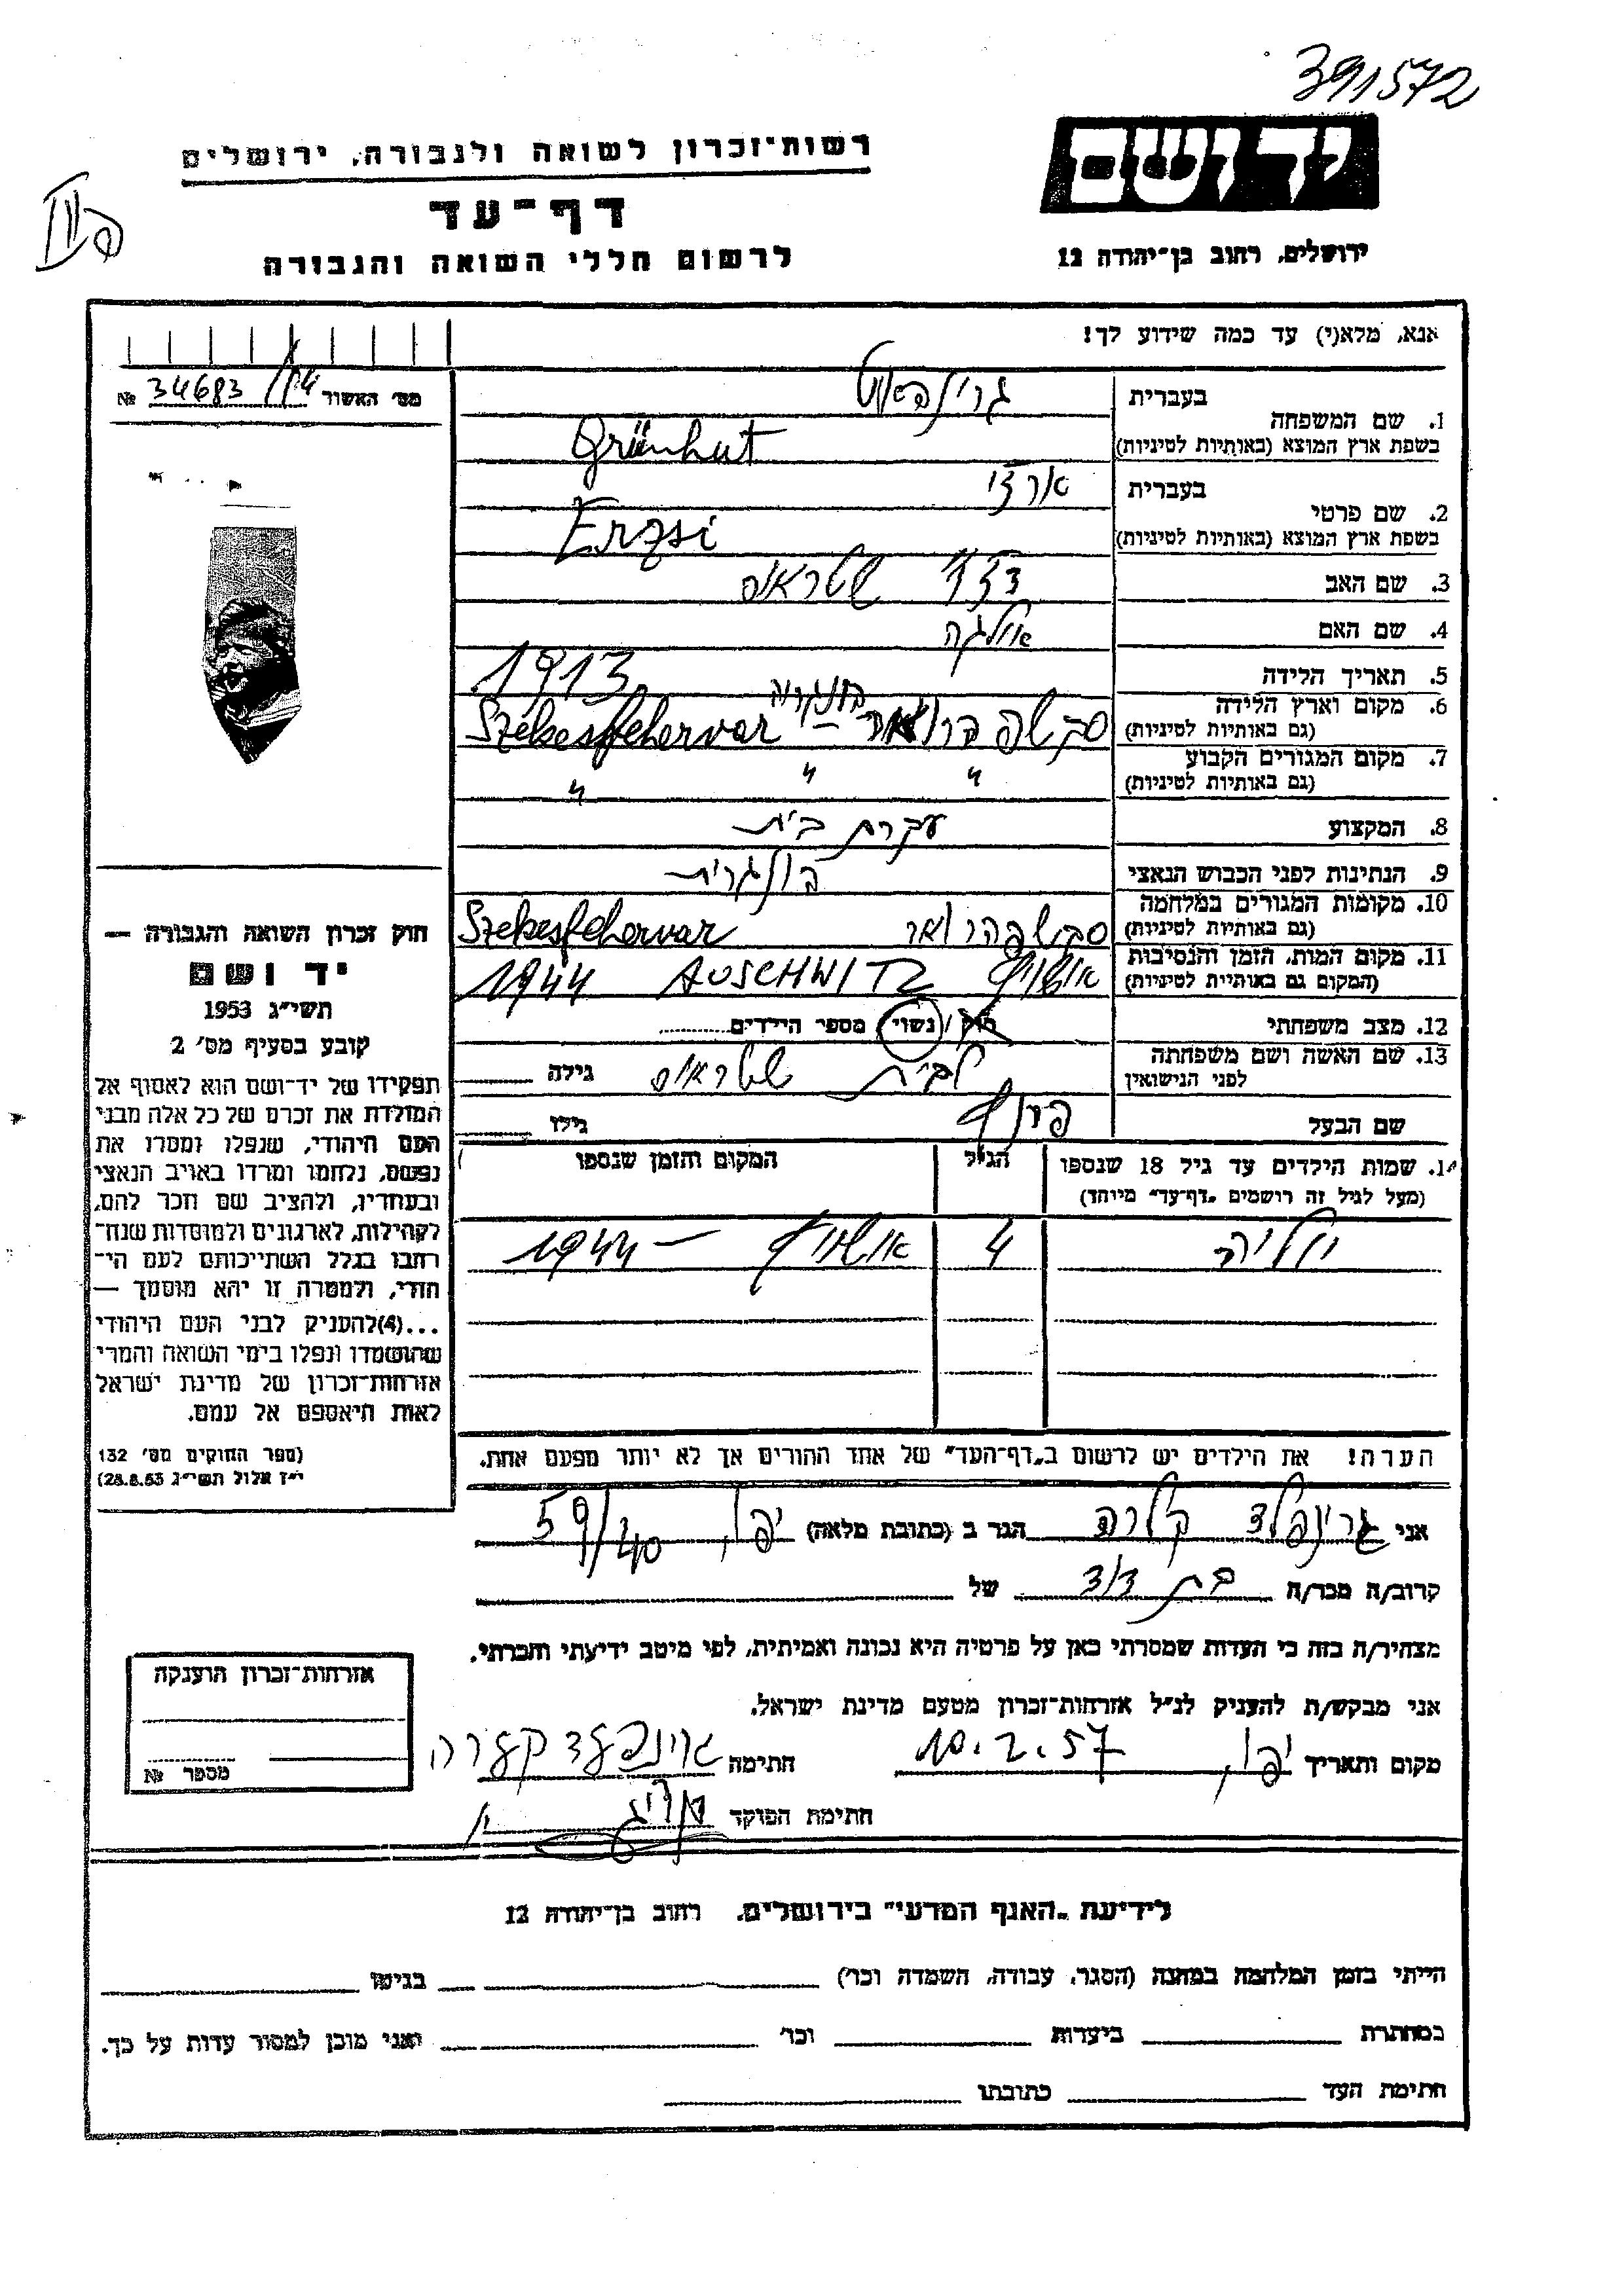 391572
יד ושם
ירושלים, רחוב בן־יהודה 12
רשות־זכרון לשואה ולגבורה, ירושלים
דף־עד
לרשום חללי השואה והגבורה
אנא, מלא(י) עד כמה שידוע לך!
מס׳ האשור 34683/14 №
1. שם המשפחה
בעברית
בשפת ארץ המוצא (באותיות לטיניות) Grünhut
2. שם פרטי
בעברית ארזי
בשפת ארץ המוצא (באותיות לטיניות) Erzsi
3. שם האב שטראוס
4. שם האם אולגה
5. תאריך הלידה 1913
6. מקום וארץ הלידה
(גם באותיות לטיניות) הונגריה – Szekesfehervar
7. מקום המגורים הקבוע
(גם באותיות לטיניות) " " "
8. המקצוע עקרת בית
9. הנתינות לפני הכבוש הנאצי הונגרית
10. מקומות המגורים במלחמה
(גם באותיות לטיניות) Szekesfehervar
11. מקום המות, הזמן והנסיבות
(המקום גם באותיות לטיניות) אושויץ AUSCHWITZ 1944
12. מצב משפחתי רוק / נשוי / מספר הילדים
13. שם האשה ושם משפחתה
לפני הנישואין לבית שטראוס גילה
שם הבעל פרנץ גילו
14. שמות הילדים עד גיל 18 שנספו
(מעל לגיל זה רושמים "דף־עד" מיוחד)
הגיל
המקום והזמן שנספו
יוליה 4 אושויץ – 1944
הערה! את הילדים יש לרשום ב"דף־העד" של אחד ההורים אך לא יותר מפעם אחת.
אני גרינפלד קלרה הגר ב (כתובת מלאה) יפו, 59/40
קרוב/ה מכר/ה בת דוד של
מצהיר/ה בזה כי העדות שמסרתי כאן על פרטיה היא נכונה ואמיתית, לפי מיטב ידיעתי והכרתי.
אני מבקש/ת להעניק לנ"ל אזרחות־זכרון מטעם מדינת ישראל.
מקום ותאריך יפו, 10.2.57 חתימה גרינפעלד קלערה
חתימת הפוקד
חוק זכרון השואה והגבורה —
יד ושם
תשי"ג 1953
קובע בסעיף מס׳ 2
תפקידו של יד־ושם הוא לאסוף אל
המולדת את זכרם של כל אלה מבני
העם היהודי, שנפלו ומסרו את
נפשם, נלחמו ומרדו באויב הנאצי
ובעוזריו, ולהציב שם וזכר להם,
לקהילות, לארגונים ולמוסדות שנח־
רבו בגלל השתייכותם לעם הי־
הודי, ולמטרה זו יהא מוסמך —
...(4) להעניק לבני העם היהודי
שהושמדו ונפלו בימי השואה והמרי
אזרחות־זכרון של מדינת ישראל
לאות היאספם אל עמם.
(ספר החוקים מס׳ 132
י"ז אלול תשי"ג 28.8.53)
אזרחות־זכרון הוענקה
מספר №
לידיעת "האגף המדעי" בירושלים, רחוב בן־יהודה 12
הייתי בזמן המלחמה במחנה (הסגר, עבודה, השמדה וכו׳) בגיטו
במחתרת ביערות וכו׳ ואני מוכן למסור עדות על כך.
חתימת העד כתובתו